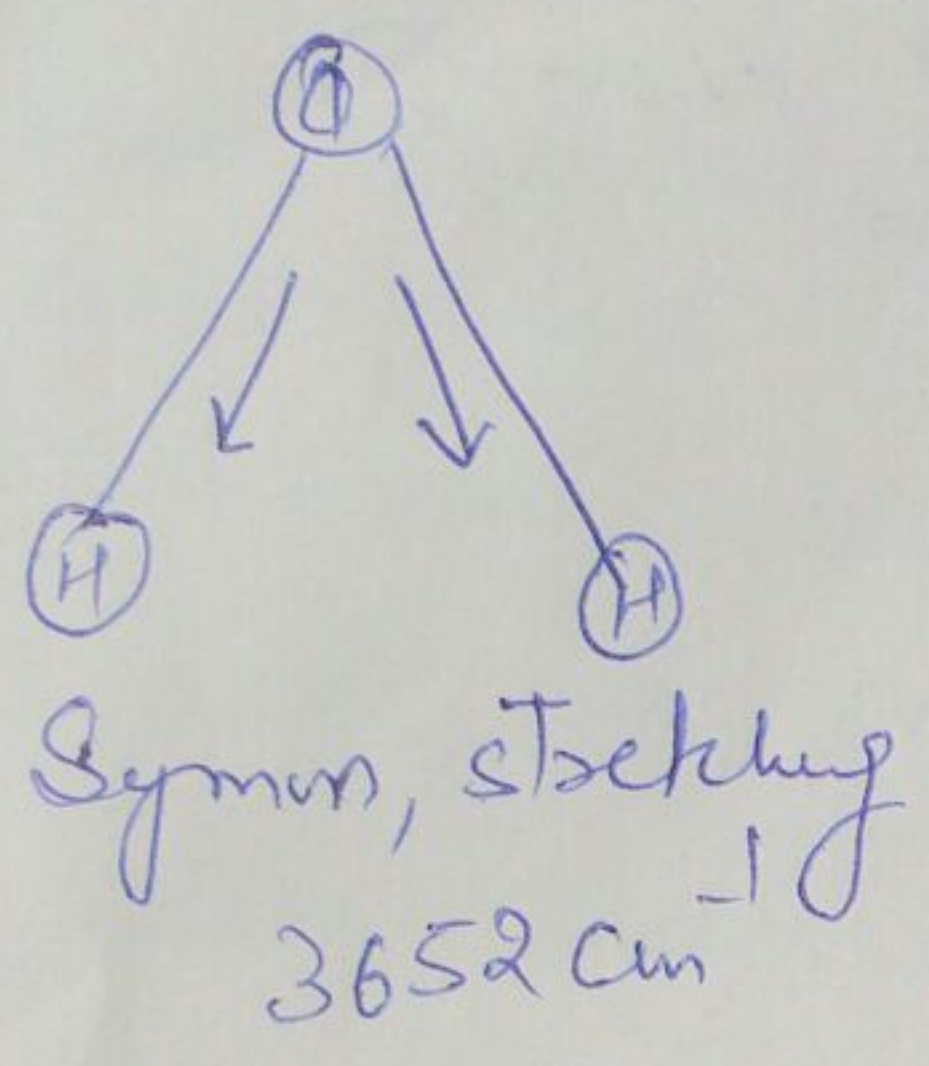 O
H H
Symm, stretching
3652 cm⁻¹